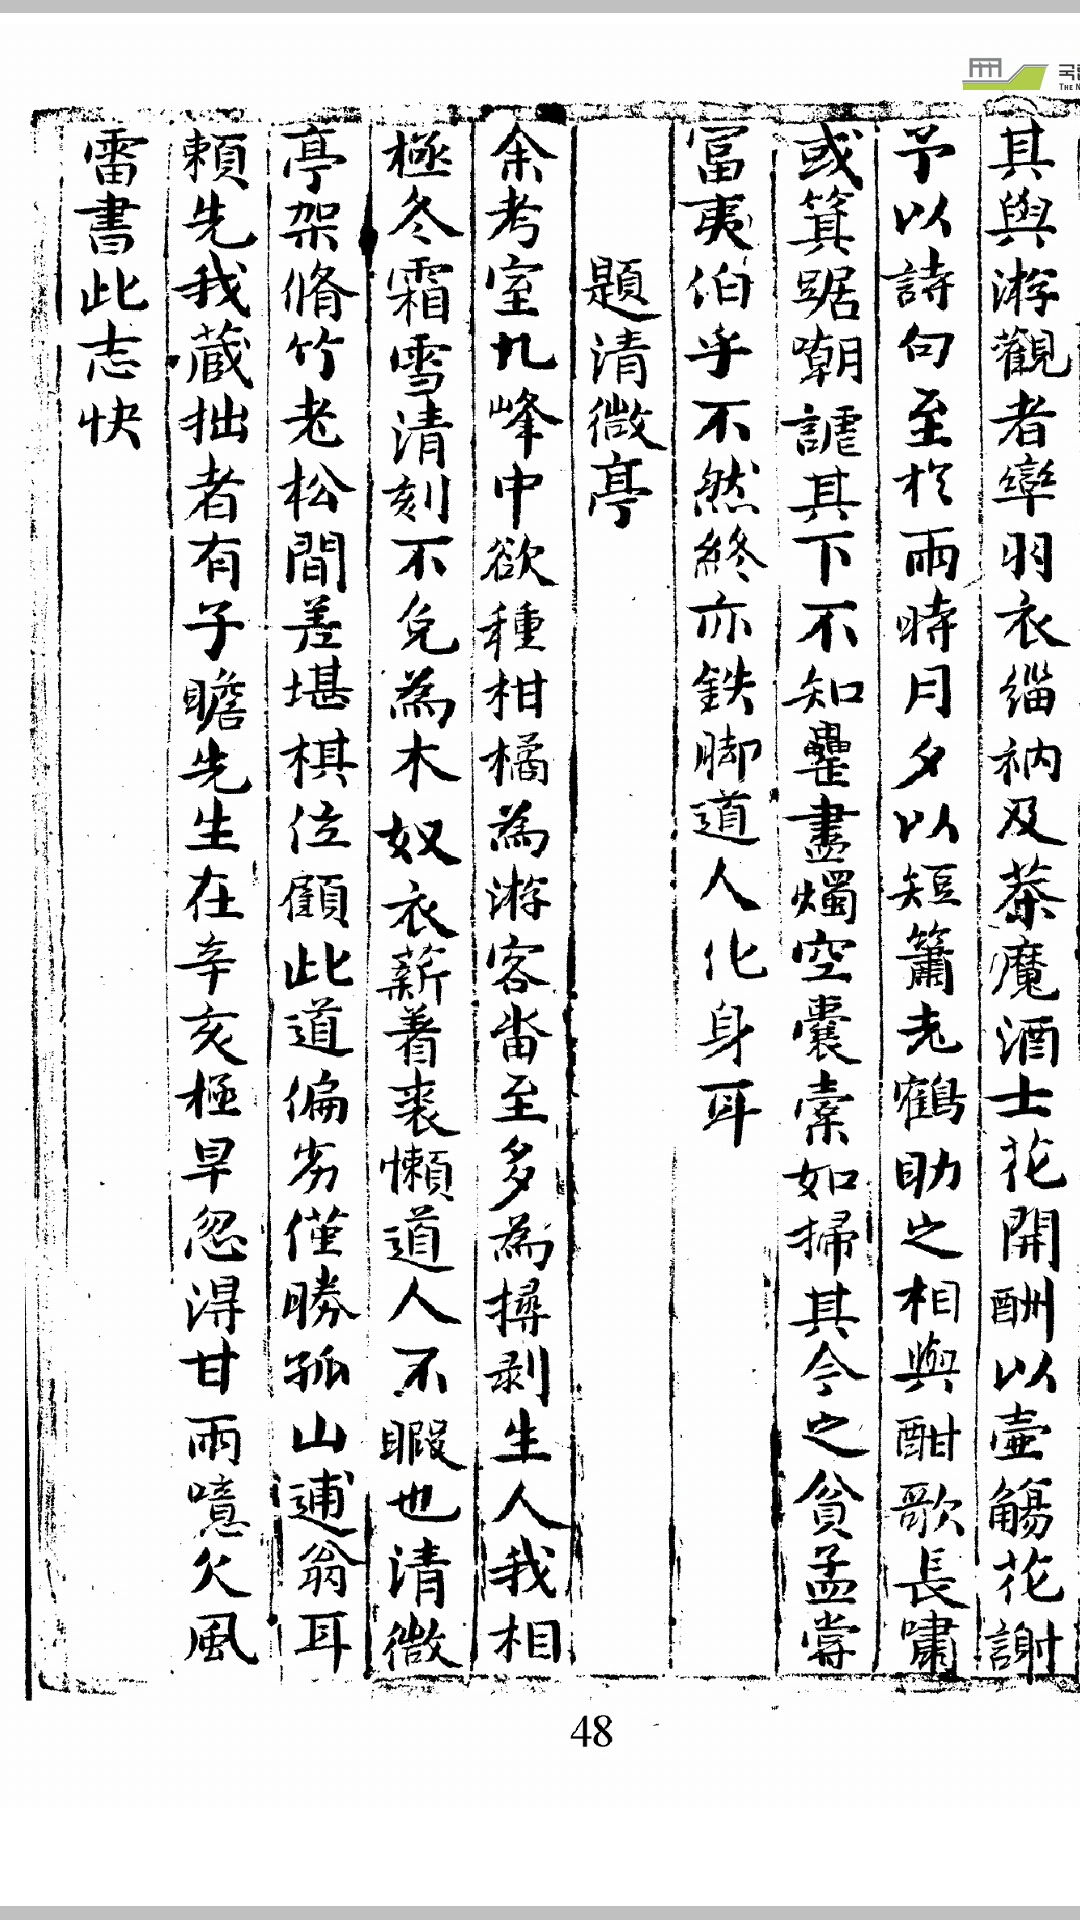 其與游觀者羣羽衣緇衲及茶魔酒士花開酬以壺觴花謝
予以詩句至於雨時月夕以短簫老鶴助之相與酣歌長嘯
或箕踞嘲謔其下不知罍盡燭空囊橐如掃其今之貧孟嘗
冨夷伯乎不然終亦鉄脚道人化身耳
題清微亭
余考室九峰中欲種柑橘為游客畨至多為撏剥生人我相
極冬霜雪清刻不免為木奴衣薪着裘懶道人不暇也清微
亭架脩竹老松間差堪棋位顧此道偏劣僅勝孤山逋翁耳
頼先我蔵拙者有子瞻先生在辛亥極旱忽得甘雨噫欠風
雷書此志快
48
국립
THE N